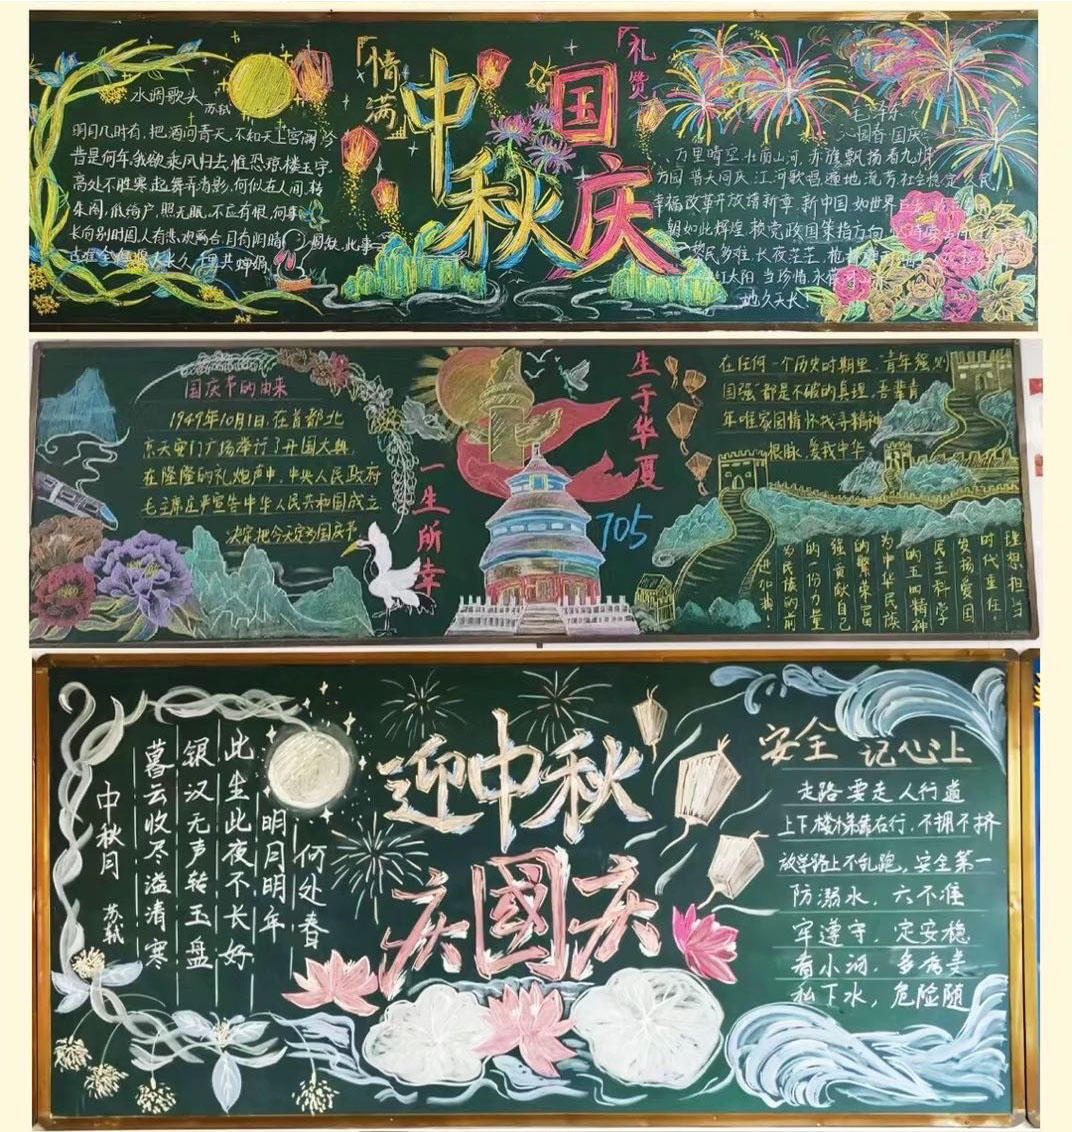 水调歌头
苏轼
明月几时有,把酒问青天,不知天上宫阙,今
昔是何年,我欲乘风归去,惟恐琼楼玉宇,
高处不胜寒,起舞弄清影,何似在人间,转
朱阁,低绮户,照无眠,不应有恨,何事
长向别时圆,人有悲欢离合,月有阴晴圆缺,此事
古难全,但愿人长久,千里共婵娟
「情满
中秋
国庆
礼赞
毛泽东
沁园春 国庆
万里晴空,壮丽山河,赤旗飘扬看九州
方圆,普天同庆,江河歌唱,遍地流芳,社会稳定,人民
幸福,改革开放谱新章,新中国,如世界巨龙
朝如此辉煌,赖党政国策指方向
黎民多难,长夜茫茫
红太阳,当珍惜,永葆
地久天长
国庆节的由来
1949年10月1日,在首都北
京天安门广场举行了开国大典,
在隆隆的礼炮声中,中央人民政府
毛主席庄严宣告中华人民共和国成立
决定把今天定为国庆节
一生所幸
生于华夏
705
在任何一个历史时期里,青年强则
国强都是不破的真理,吾辈青
年唯家国情怀找寻精神
根脉,爱我中华
理想担当
时代重任
发扬爱国
民主科学
的五四精神
为中华民族
的繁荣富
强贡献自己
的一份力量
为民族的前
进加油!
中秋月 苏轼
暮云收尽溢清寒
银汉无声转玉盘
此生此夜不长好
明月明年
何处春
迎中秋
庆國庆
安全 记心上
走路要走人行道
上下楼梯靠右行,不拥不挤
放学路上不乱跑,安全第一
防溺水,六不准
牢遵守,定安稳
看小河,多病毒
私下水,危险随